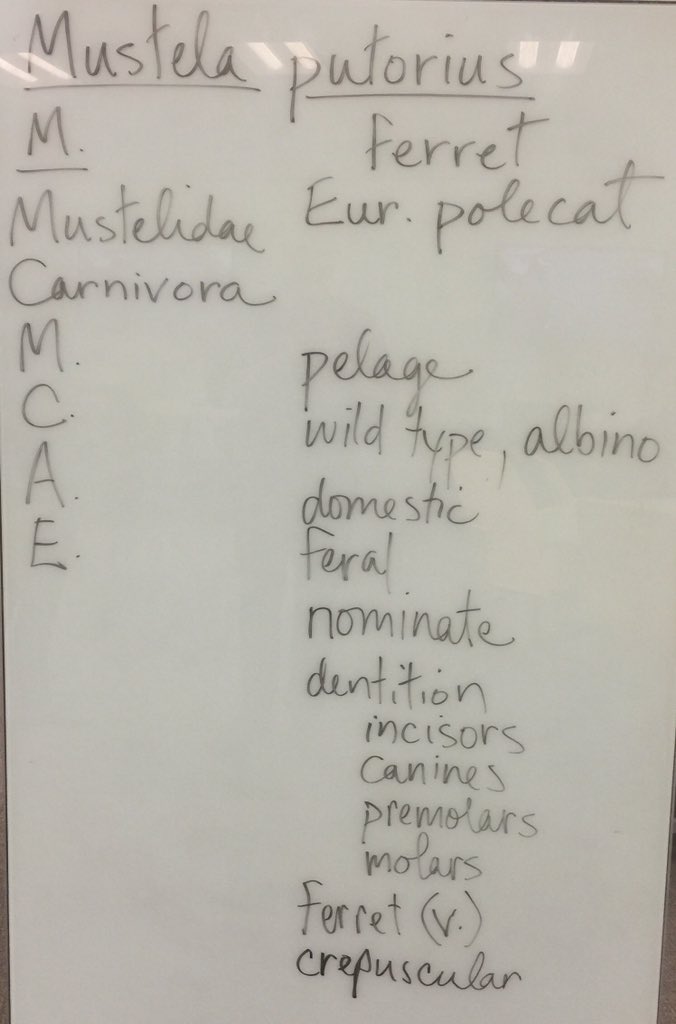 Mustela putorius
M. Ferret
Mustelidae Eur. polecat
Carnivora
M. pelage
C. wild type, albino
A. domestic
E. feral
nominate
dentition
incisors
canines
premolars
molars
ferret (v.)
crepuscular